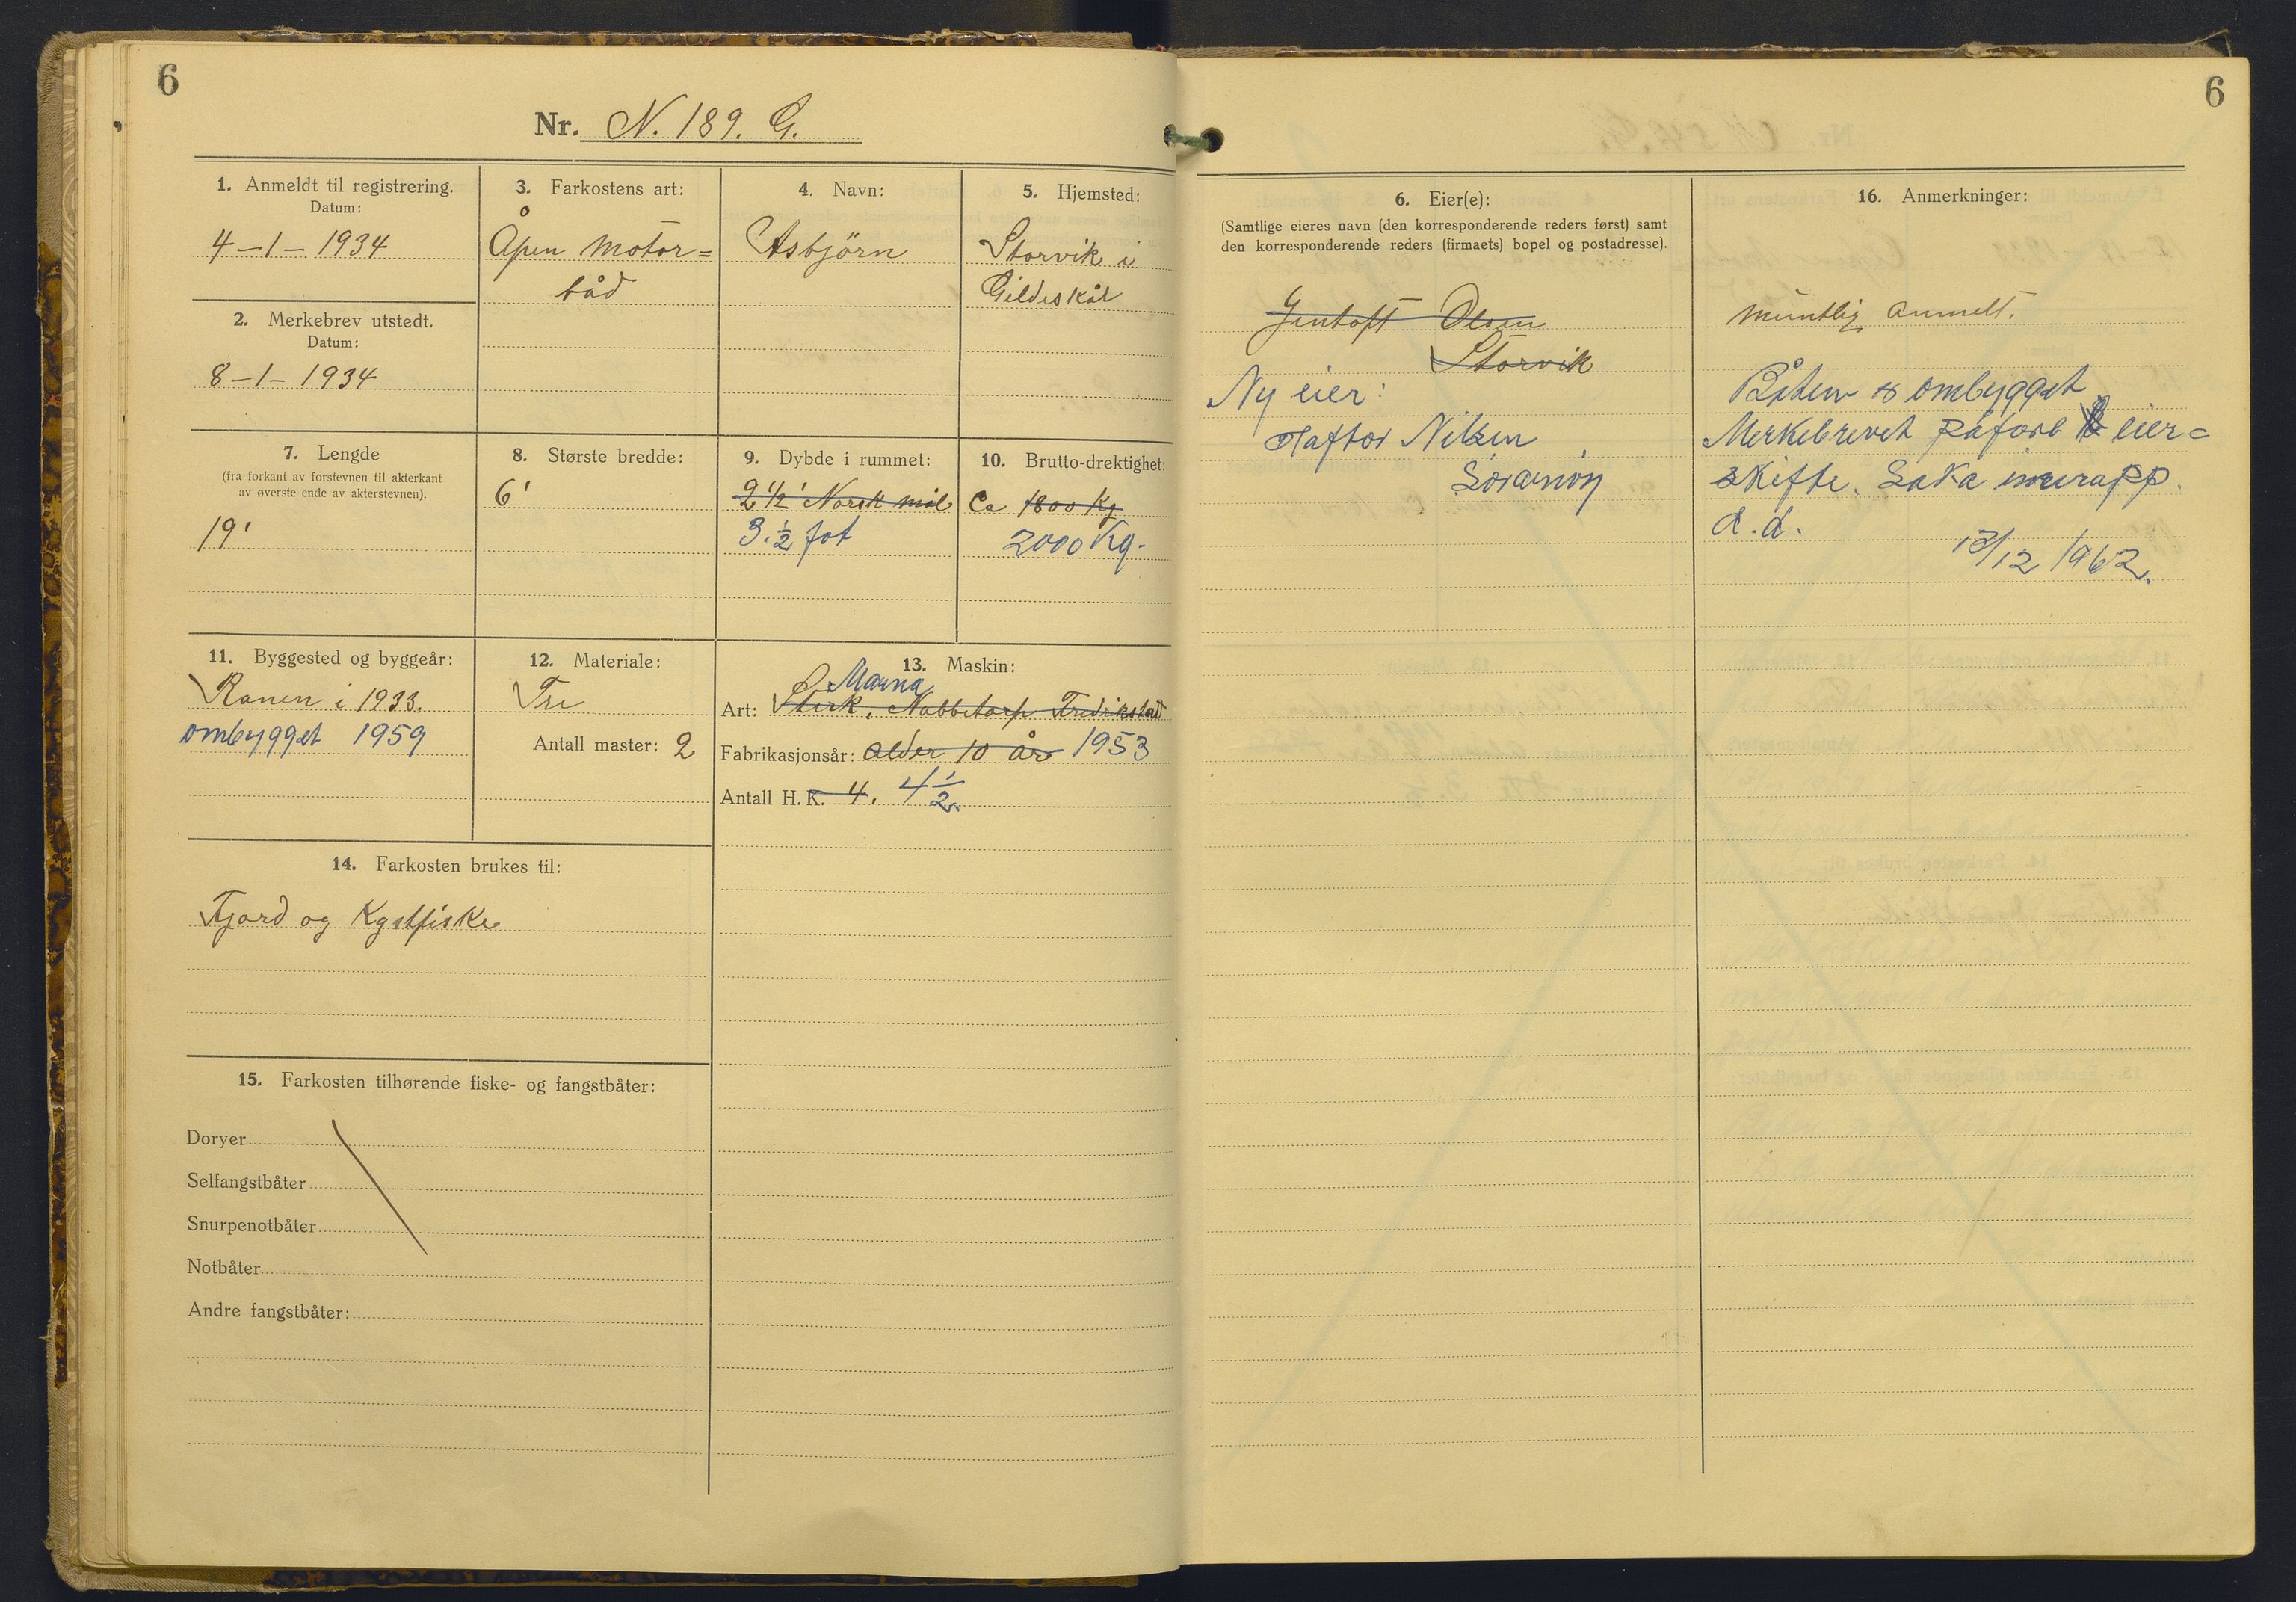 6
Nr. N. 189. G.
1. Anmeldt til registrering.
Datum:
4-1-1934
2. Merkebrev utstedt.
Datum:
8-1-1934
3. Farkostens art:
Åpen motor=
båd
4. Navn:
Asbjörn
5. Hjemsted:
Storvik i
Gildeskål
7. Lengde
(fra forkant av forstevnen til akterkant
av øverste ende av akterstevnen).
19'
8. Største bredde:
6'
9. Dybde i rummet:
2 1/2' Norsk mål
3. 1/2 fot
10. Brutto-drektighet:
Ca 1800 Kg
2000 Kg.
11. Byggested og byggeår:
Ranen i 1933.
ombygget 1959
12. Materiale:
Tre
Antall master: 2
13. Maskin:
Marna
Art: Sterk, Nabbetorp Fredrikstad
Fabrikasjonsår: alder 10 år 1953
Antall H. K. 4. 4 1/2.
14. Farkosten brukes til:
Fjord og Kystfiske
15. Farkosten tilhørende fiske- og fangstbåter:
Doryer
Selfangstbåter
Snurpenotbåter
Notbåter
Andre fangstbåter:
6
6. Eier(e):
(Samtlige eieres navn (den korresponderende reders først) samt
den korresponderende reders (firmaets) bopel og postadresse).
Jentoft Olsen
Storvik
Ny eier:
Haftor Nilsen
Sørarnøy
16. Anmerkninger:
Muntlig anmelt.
Båten er ombygget
Merkebrevet påført eier=
skifte. Saka innrapp.
d.d.
13/12 1962.